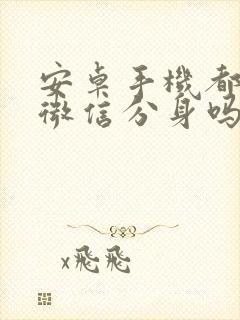 安卓手機都
微信分身吗
x飛飛